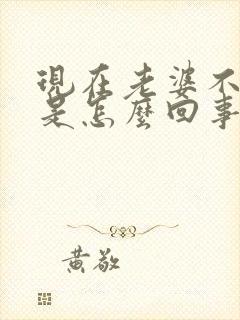 現在老婆不
是怎麼回事
黃敬